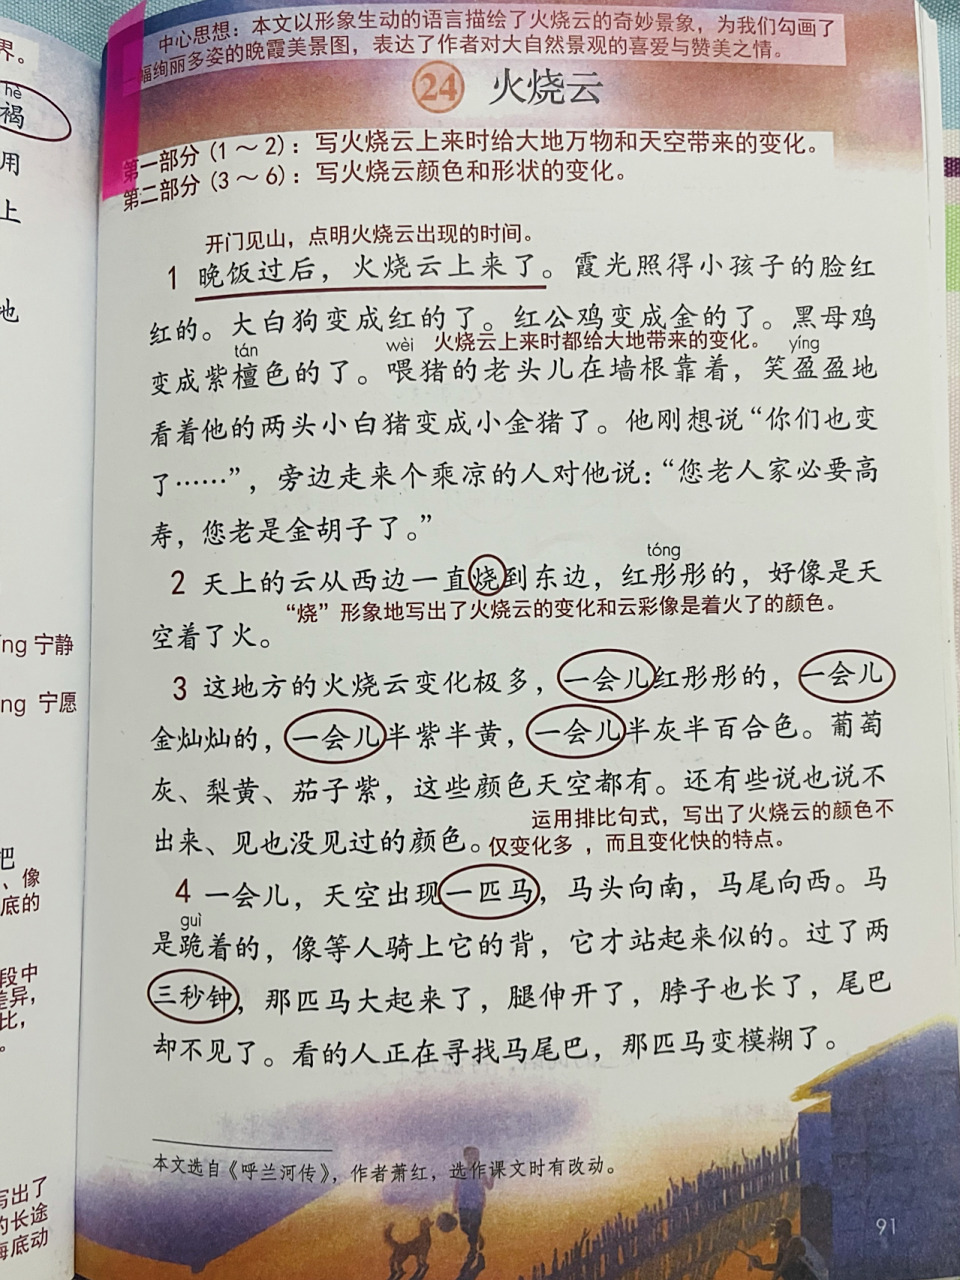 界。
hè
褐
用
上
地
íng 宁静
ng 宁愿
把
、像
底的
段中
差异,
比,
。
写出了
的长途
海底动
中心思想：本文以形象生动的语言描绘了火烧云的奇妙景象，为我们勾画了
一幅绚丽多姿的晚霞美景图，表达了作者对大自然景观的喜爱与赞美之情。
24 火烧云
第一部分（1～2）：写火烧云上来时给大地万物和天空带来的变化。
第二部分（3～6）：写火烧云颜色和形状的变化。
开门见山，点明火烧云出现的时间。
1 晚饭过后，火烧云上来了。霞光照得小孩子的脸红
红的。大白狗变成红的了。红公鸡变成金的了。黑母鸡
火烧云上来时都给大地带来的变化。
tán wèi yíng
变成紫檀色的了。喂猪的老头儿在墙根靠着，笑盈盈地
看着他的两头小白猪变成小金猪了。他刚想说“你们也变
了……”，旁边走来个乘凉的人对他说：“您老人家必要高
寿，您老是金胡子了。”
tóng
2 天上的云从西边一直烧到东边，红彤彤的，好像是天
“烧”形象地写出了火烧云的变化和云彩像是着火了的颜色。
空着了火。
3 这地方的火烧云变化极多，一会儿红彤彤的，一会儿
金灿灿的，一会儿半紫半黄，一会儿半灰半百合色。葡萄
灰、梨黄、茄子紫，这些颜色天空都有。还有些说也说不
出来、见也没见过的颜色。
运用排比句式，写出了火烧云的颜色不
仅变化多，而且变化快的特点。
4 一会儿，天空出现一匹马，马头向南，马尾向西。马
guì
是跪着的，像等人骑上它的背，它才站起来似的。过了两
三秒钟，那匹马大起来了，腿伸开了，脖子也长了，尾巴
却不见了。看的人正在寻找马尾巴，那匹马变模糊了。
本文选自《呼兰河传》，作者萧红，选作课文时有改动。
91